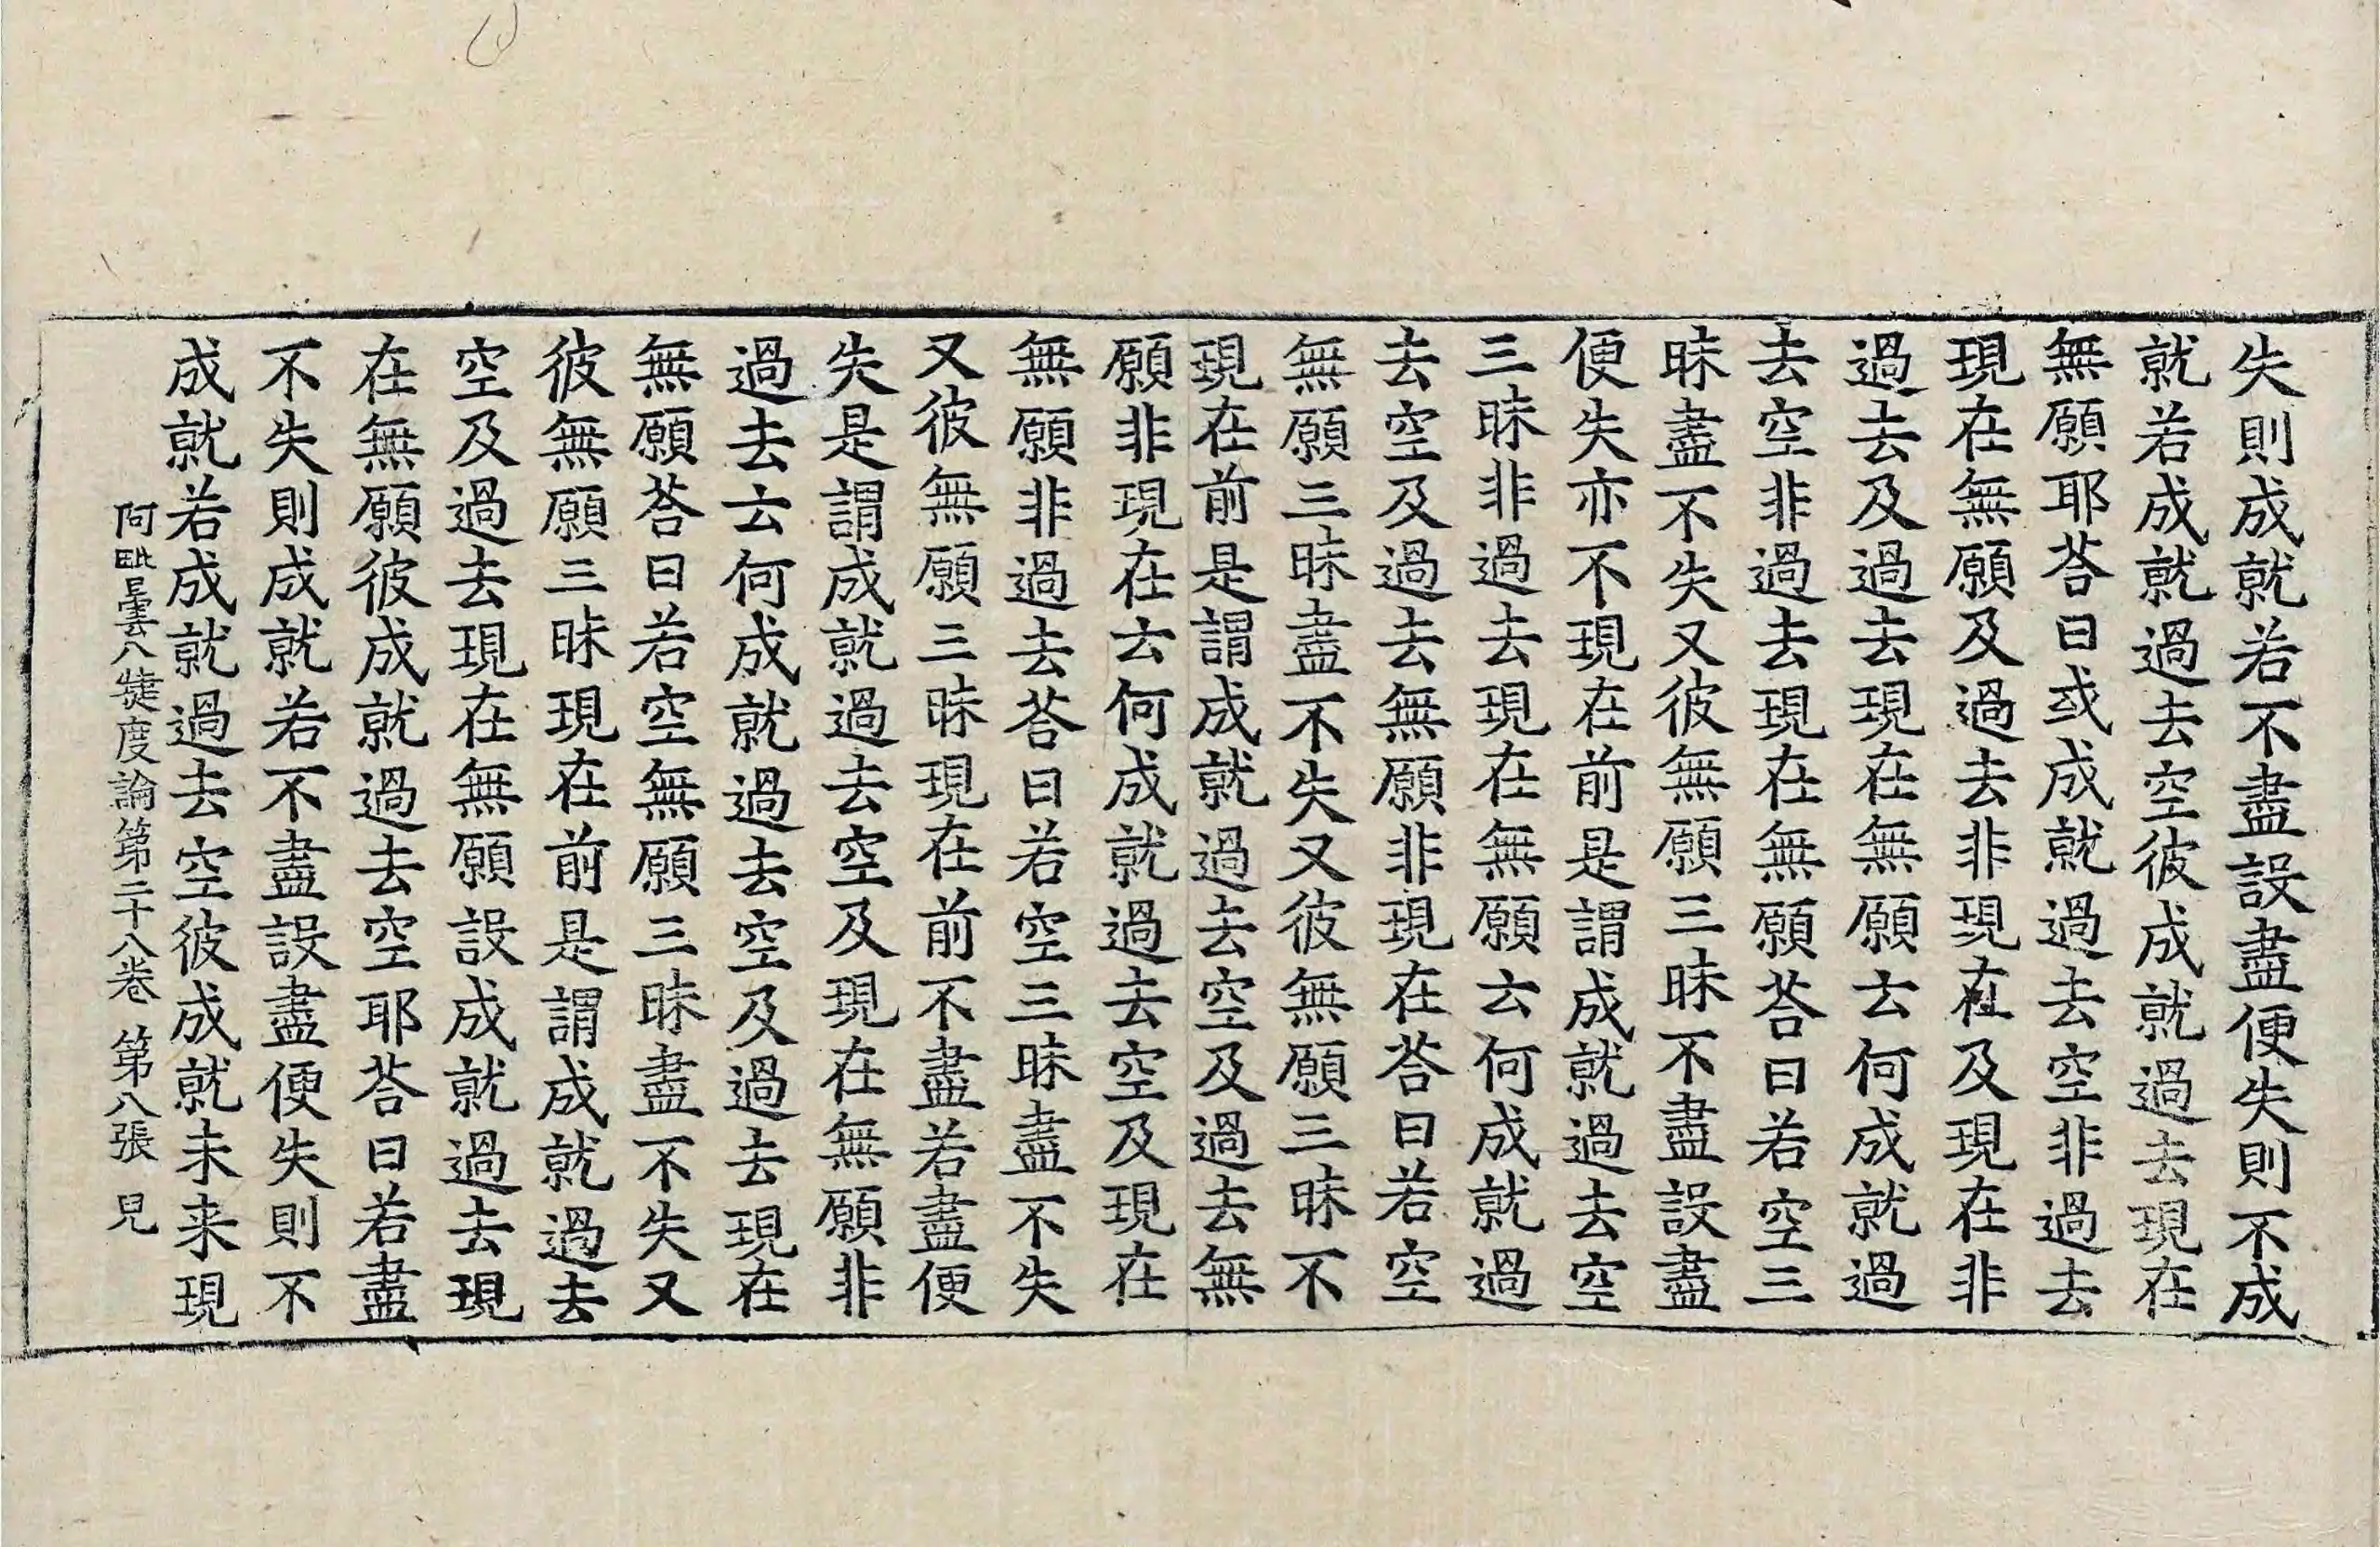 失則成就若不盡設盡便失則不成
就若成就過去空彼成就過去現在
無願耶荅曰或成就過去空非過去
現在無願及過去非現在及現在非
過去及過去現在無願云何成就過
去空非過去現在無願荅曰若空三
昧盡不失又彼無願三昧不盡設盡
便失亦不現在前是謂成就過去空
三昧非過去現在無願云何成就過
去空及過去無願非現在荅曰若空
無願三昧盡不失又彼無願三昧不
現在前是謂成就過去空及過去無
願非現在云何成就過去空及現在
無願非過去荅曰若空三昧盡不失
又彼無願三昧現在前不盡若盡便
失是謂成就過去空及現在無願非
過去云何成就過去空及過去現在
無願荅曰若空無願三昧盡不失又
彼無願三昧現在前是謂成就過去
空及過去現在無願設成就過去現
在無願彼成就過去空耶荅曰若盡
不失則成就若不盡設盡便失則不
成就若成就過去空彼成就未来現
阿毗曇八揵度論第二十八卷 第八張 見